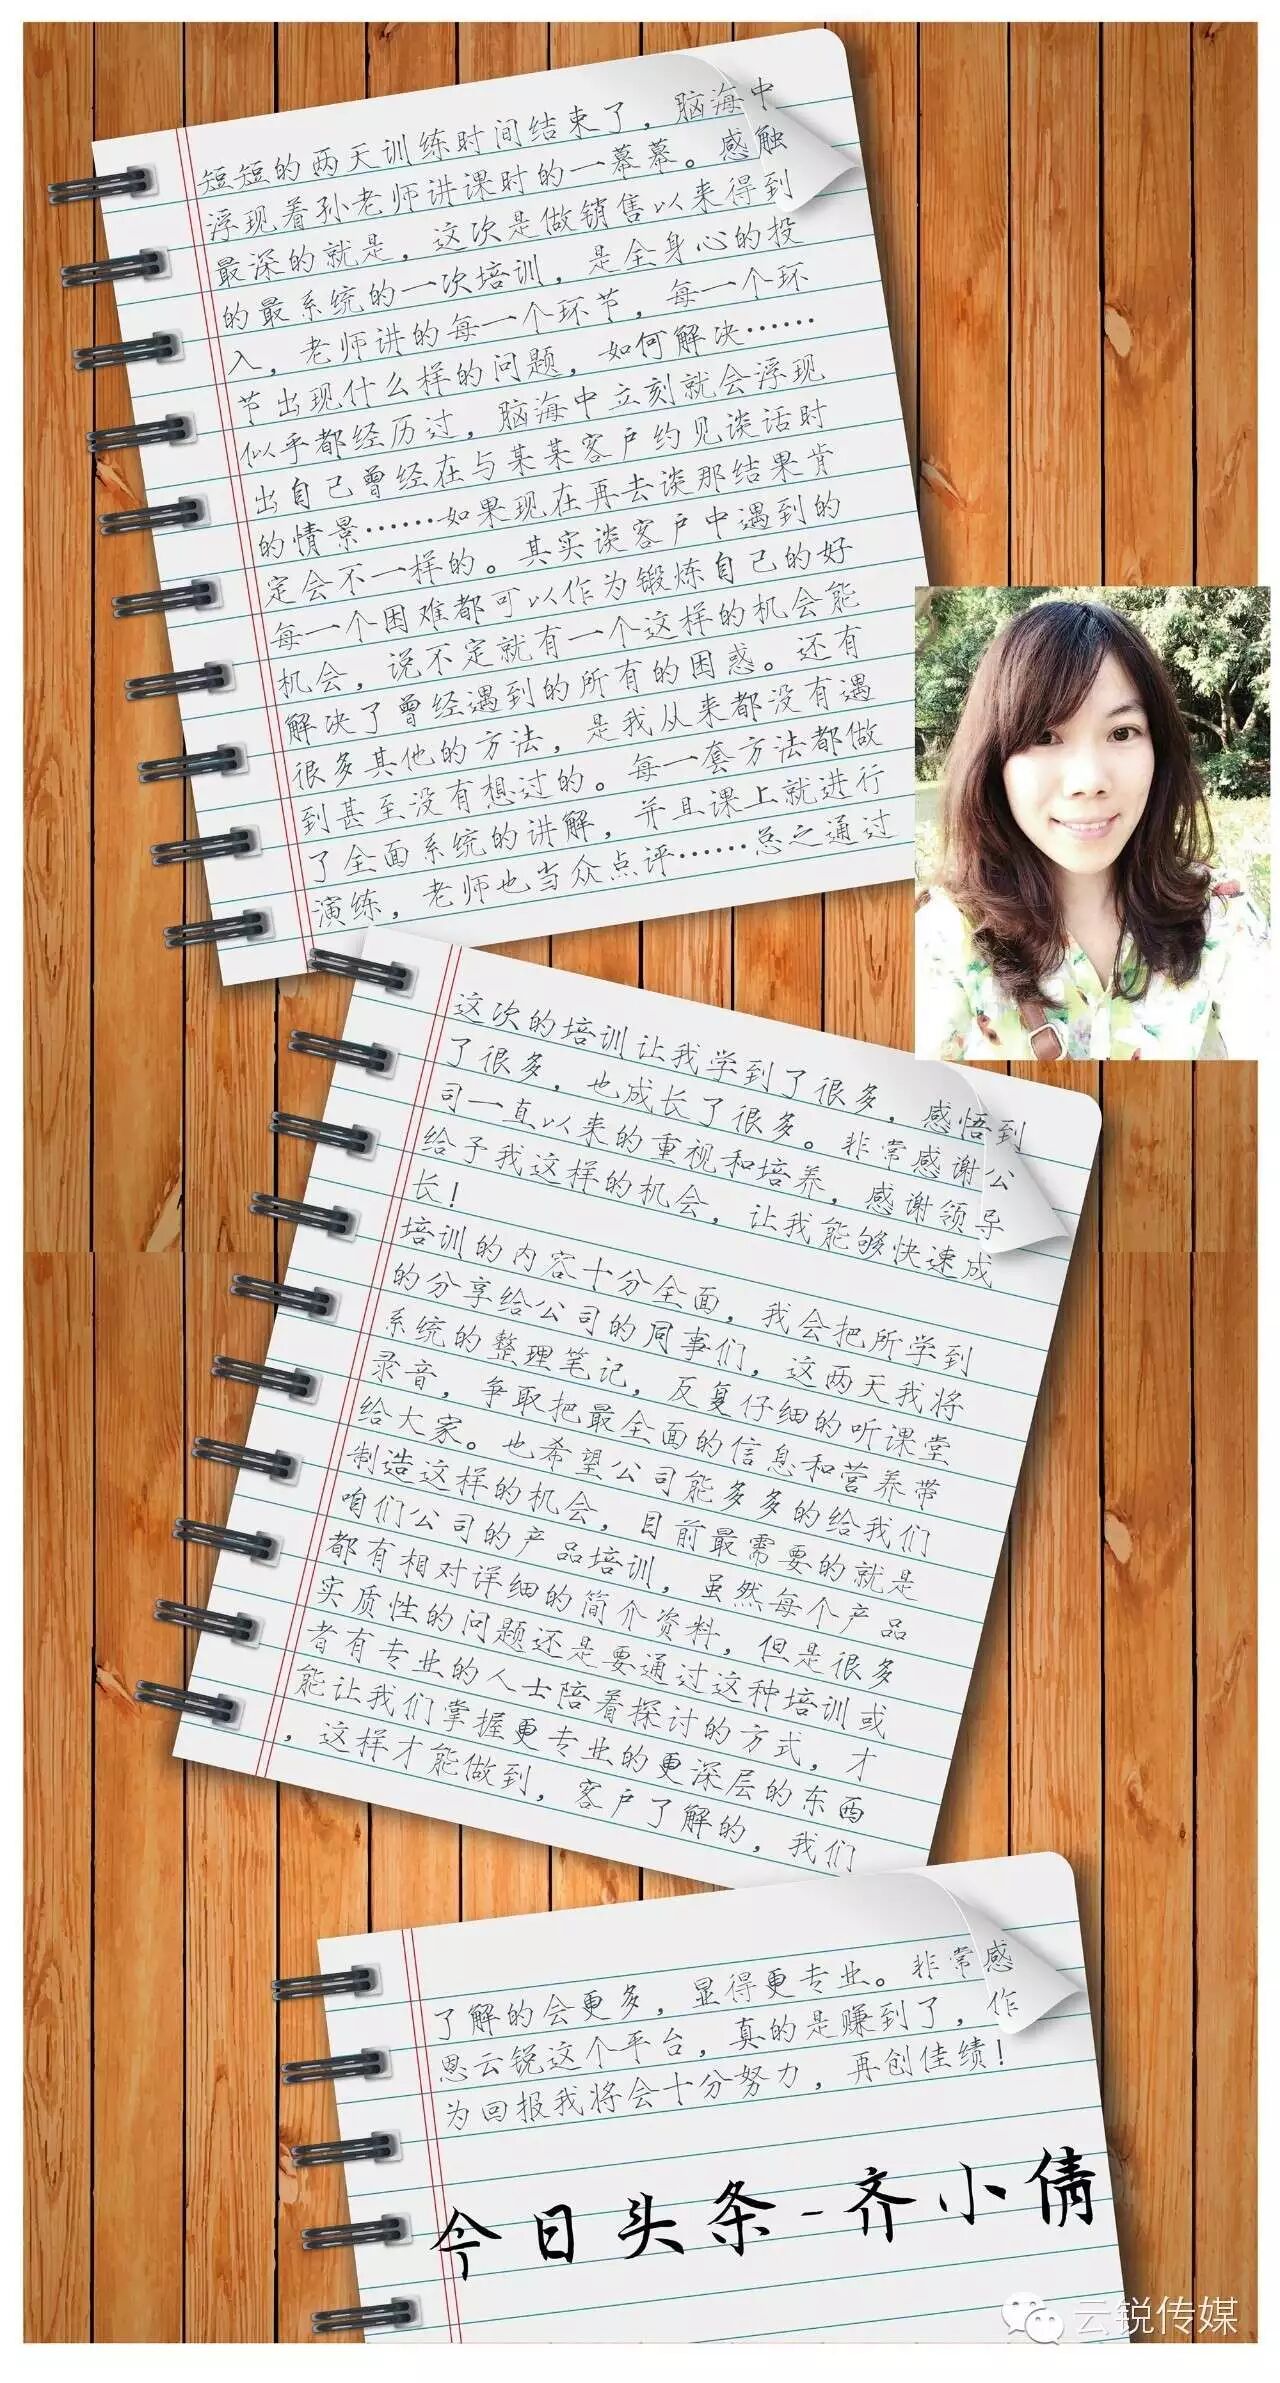 短短的两天训练时间结束了，脑海中
浮现着孙老师讲课时的一幕幕。感触
最深的就是，这次是做销售以来得到
的最系统的一次培训，是全身心的投
入，老师讲的每一个环节，每一个环
节出现什么样的问题，如何解决……
似乎都经历过，脑海中立刻就会浮现
出自己曾经在与某某客户约见谈话时
的情景……如果现在再去谈那结果肯
定会不一样的。其实谈客户中遇到的
每一个困难都可以作为锻炼自己的好
机会，说不定就有一个这样的机会能
解决了曾经遇到的所有的困惑。还有
很多其他的方法，是我从来都没有遇
到甚至没有想过的。每一套方法都做
了全面系统的讲解，并且课上就进行
演练，老师也当众点评……总之通过
这次的培训让我学到了很多，感悟到
了很多，也成长了很多。非常感谢公
司一直以来的重视和培养，感谢领导
给予我这样的机会，让我能够快速成
长！
培训的内容十分全面，我会把所学到
的分享给公司的同事们，这两天我将
系统的整理笔记，反复仔细的听课堂
录音，争取把最全面的信息和营养带
给大家。也希望公司能多多的给我们
制造这样的机会，目前最需要的就是
咱们公司的产品培训，虽然每个产品
都有相对详细的简介资料，但是很多
实质性的问题还是要通过这种培训或
者有专业的人士陪着探讨的方式，才
能让我们掌握更专业的更深层的东西
，这样才能做到，客户了解的，我们
了解的会更多，显得更专业。非常感
恩云锐这个平台，真的是赚到了，作
为回报我将会十分努力，再创佳绩！
今日头条-齐小倩
云锐传媒